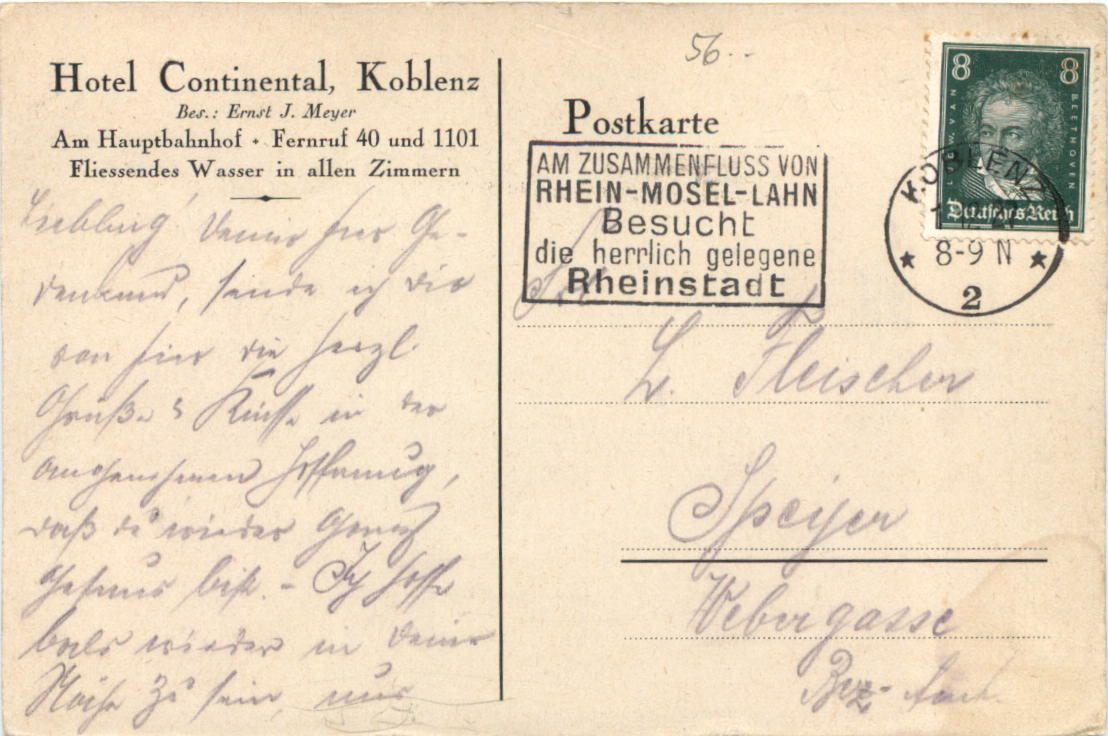 Hotel Continental, Koblenz
Bes.: Ernst J. Meyer
Am Hauptbahnhof • Fernruf 40 und 1101
Fliessendes Wasser in allen Zimmern
Liebling! Deiner hier Ge-
denkend, sende ich dir
von hier die herzl.
Grüße & Küsse in der
angenehmen Hoffnung,
daß du wieder
bist. - Ich hoffe
bald wieder in Deiner
Nähe zu sein,
56..
Postkarte
AM ZUSAMMENFLUSS VON
RHEIN-MOSEL-LAHN
Besucht
die herrlich gelegene
Rheinstadt
8 8
L. VAN BEETHOVEN
Deutsches Reich
KOBLENZ
8-9 N
2
L. Fleischer
Speijer
Webergasse
Bez.-Amt.